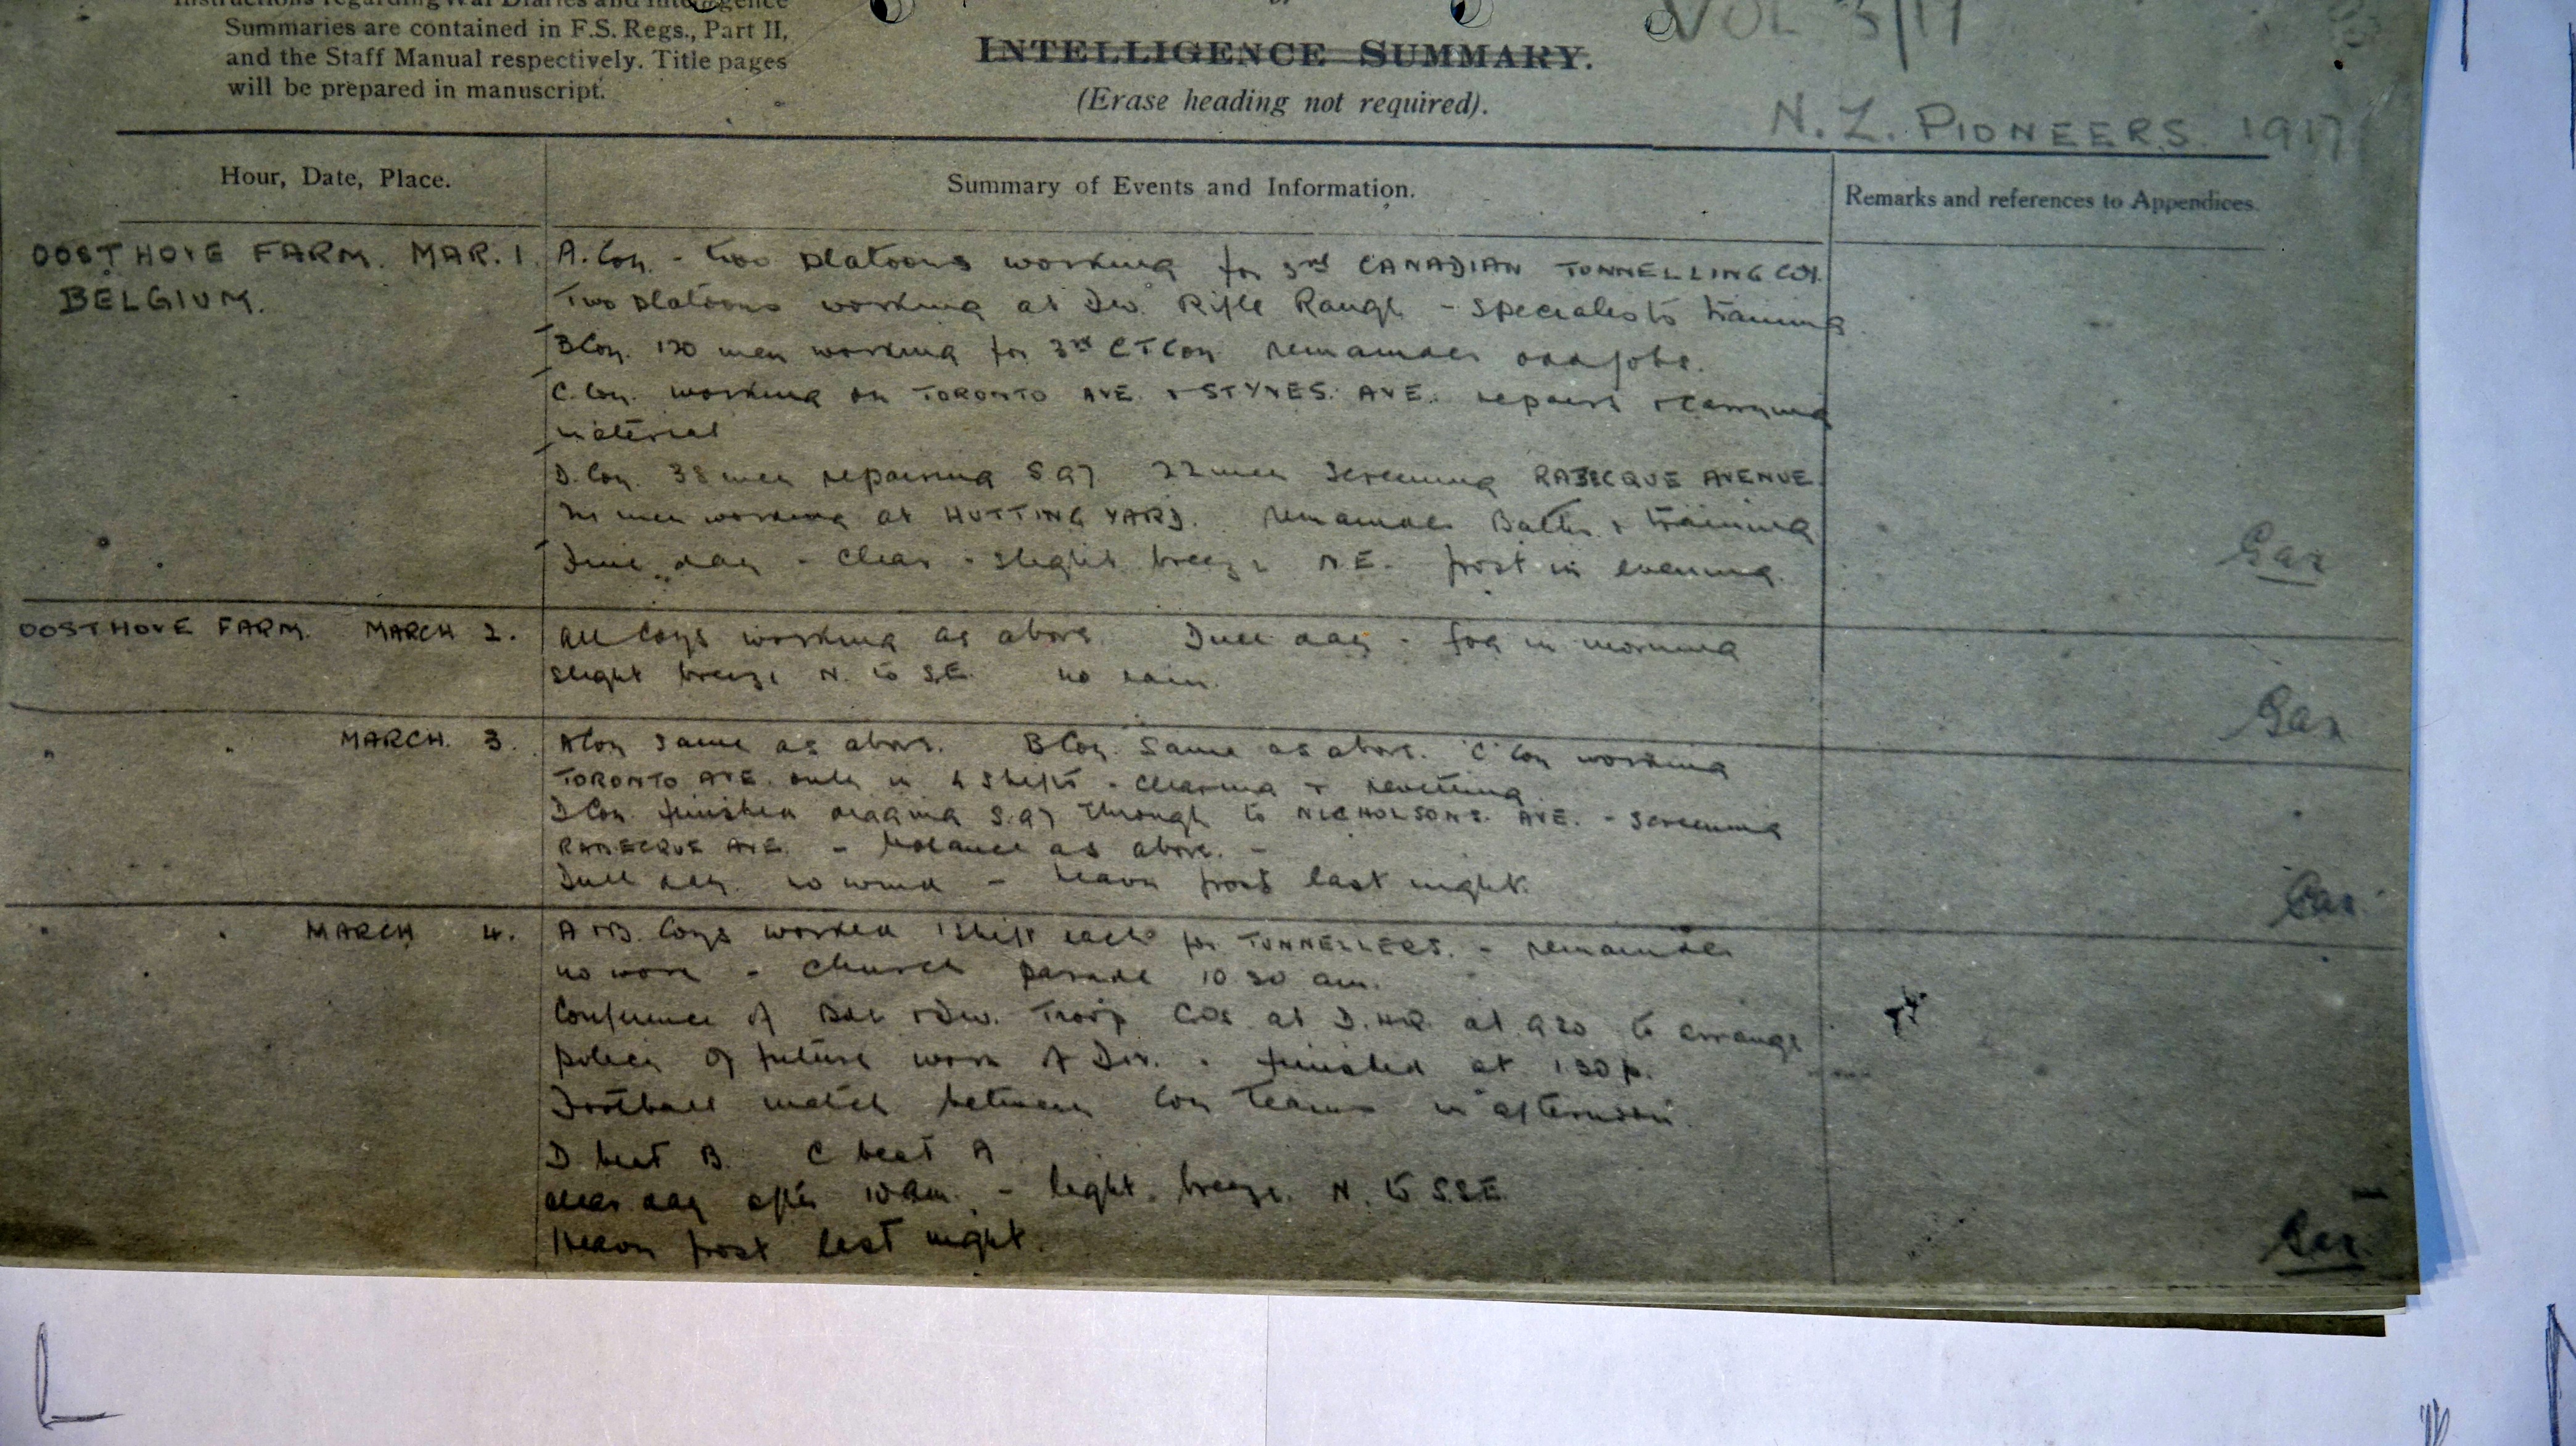 Instructions regarding War Diaries and Intelligence
Summaries are contained in F.S. Regs., Part II,
and the Staff Manual respectively. Title pages
will be prepared in manuscript.
INTELLIGENCE SUMMARY.
(Erase heading not required).
VOL 3/17
N.Z. PIONEERS. 1917
Hour, Date, Place.
Summary of Events and Information.
Remarks and references to Appendices.
OOSTHOVE FARM. MAR. 1.
BELGIUM.
A. Coy. - two platoons working for 3rd CANADIAN TUNNELLING COY.
Two platoons working at Div. Rifle Range - specialists training
B Coy. 120 men working for 3rd C T Coy remainder odd jobs.
C. Coy. working on TORONTO AVE. & STYNES. AVE. repairs & carrying
material
D. Coy. 38 men repairing S 97 22 men screening RABECQUE AVENUE.
men working at HUTTING YARD. remainder Baths & training
Fine day - clear - slight breeze N.E. frost in evening.
OOSTHOVE FARM. MARCH 2.
All Coys working as above. Dull day - fog in morning
slight breeze N. to S.E. no rain.
" " MARCH. 3.
A Coy same as above. B Coy. Same as above. 'C' Coy working
TORONTO AVE. only in 4 shifts - clearing & revetting
D Coy. finished digging S.97 through to NICHOLSONS. AVE. - screening
RABECQUE AVE. - balance as above. -
Dull day. no wind - heavy frost last night.
" " MARCH 4.
A & B. Coys worked 1 shift each for TUNNELLERS. - remainder
no work - Church parade 10.30 am.
Conference of Bde & Div. Troop C.Os. at D.HQ. at 9 20 to arrange
policy of future work of Div. - finished at 1 30 p.
Football match between Coy Teams in afternoon.
D beat B. C beat A
clear day after 10 am. - light breeze. N. to S.S.E.
Heavy frost last night.